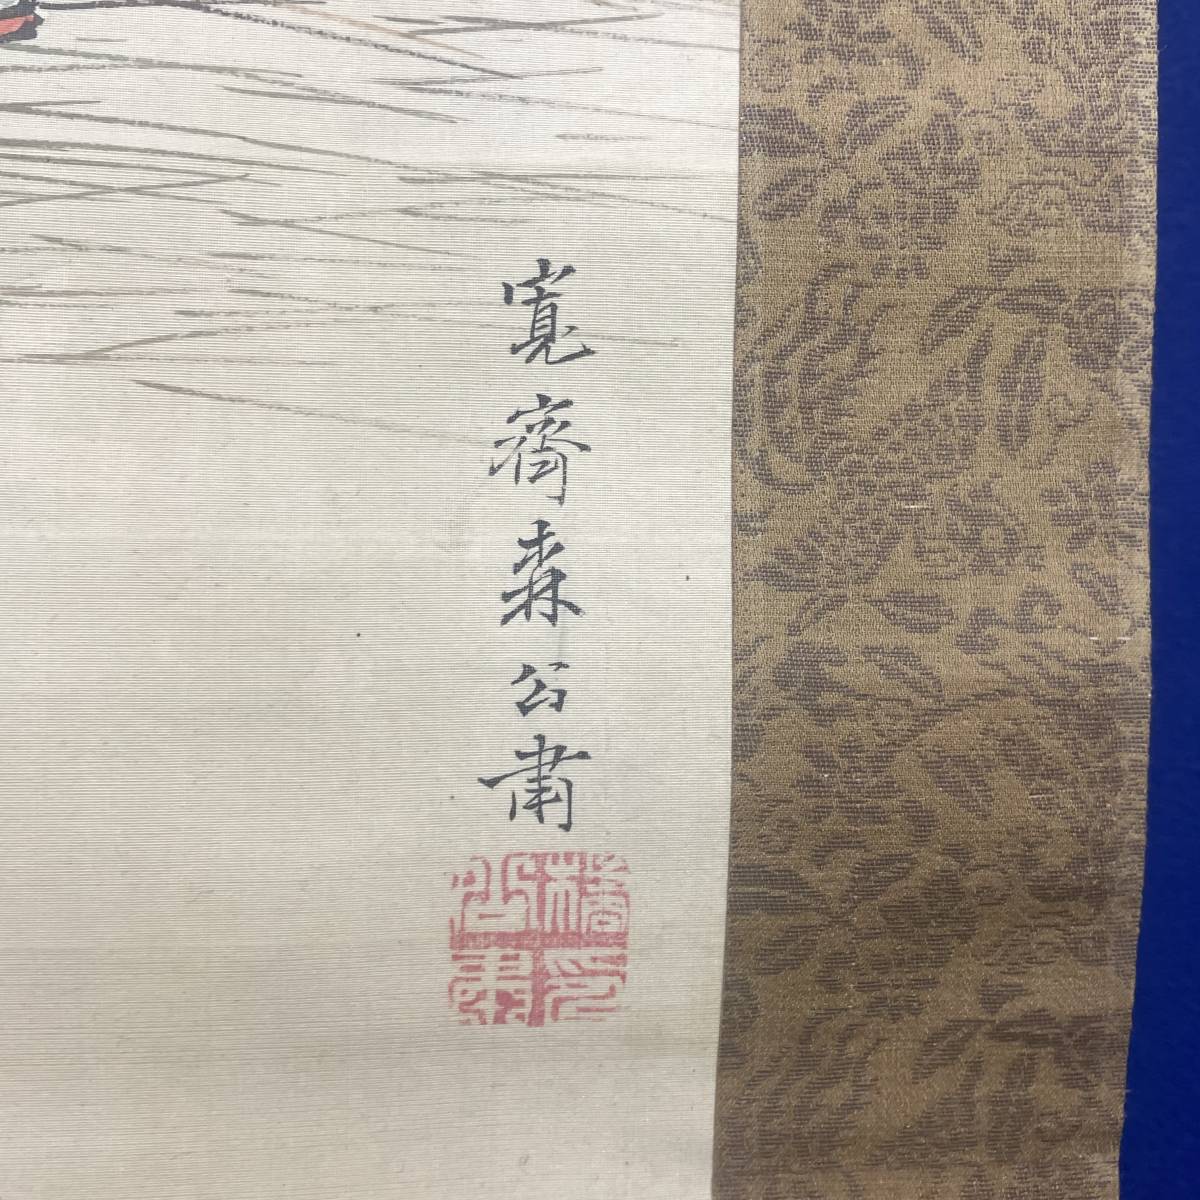 寛齋森公肅